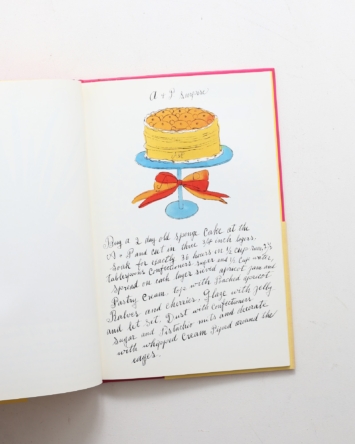 A & P Surprise
Buy a 2 day old sponge cake at the
A & P and cut in three 3/4 inch layers.
Soak for exactly 36 hours in 1/2 cup rum, 2 1/2
tablespoons confectioners sugar and 1/2 cup water.
Spread on each layer sieved apricot jam and
Pastry Cream. Top with Poached apricot
halves and cherries. Glaze with jelly
and let set. Dust with confectioners
sugar and Pistachio nuts and decorate
with whipped cream Piped around the
edges.